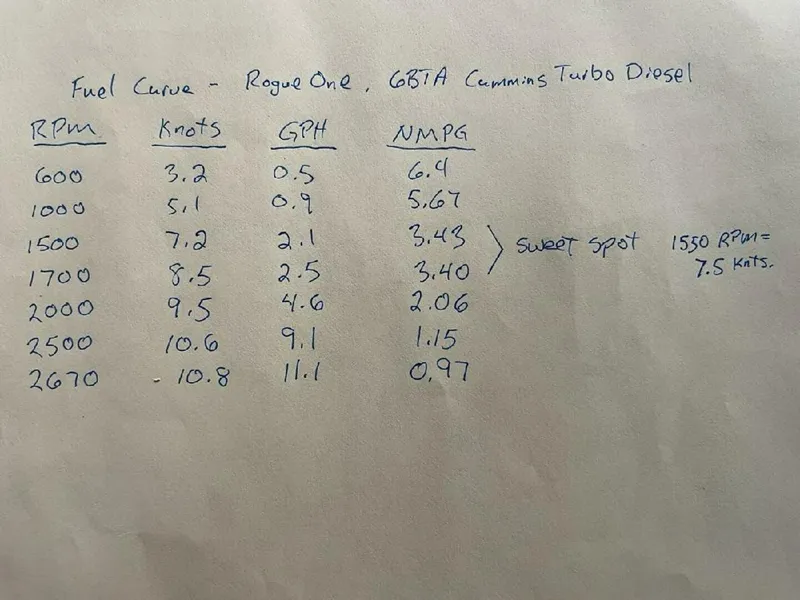 Fuel Curve - Rogue One, 6BTA Cummins Turbo Diesel
RPM Knots GPH NMPG
600 3.2 0.5 6.4
1000 5.1 0.9 5.67
1500 7.2 2.1 3.43 > sweet spot 1550 RPM=
1700 8.5 2.5 3.40 7.5 Knts.
2000 9.5 4.6 2.06
2500 10.6 9.1 1.15
2670 - 10.8 11.1 0.97